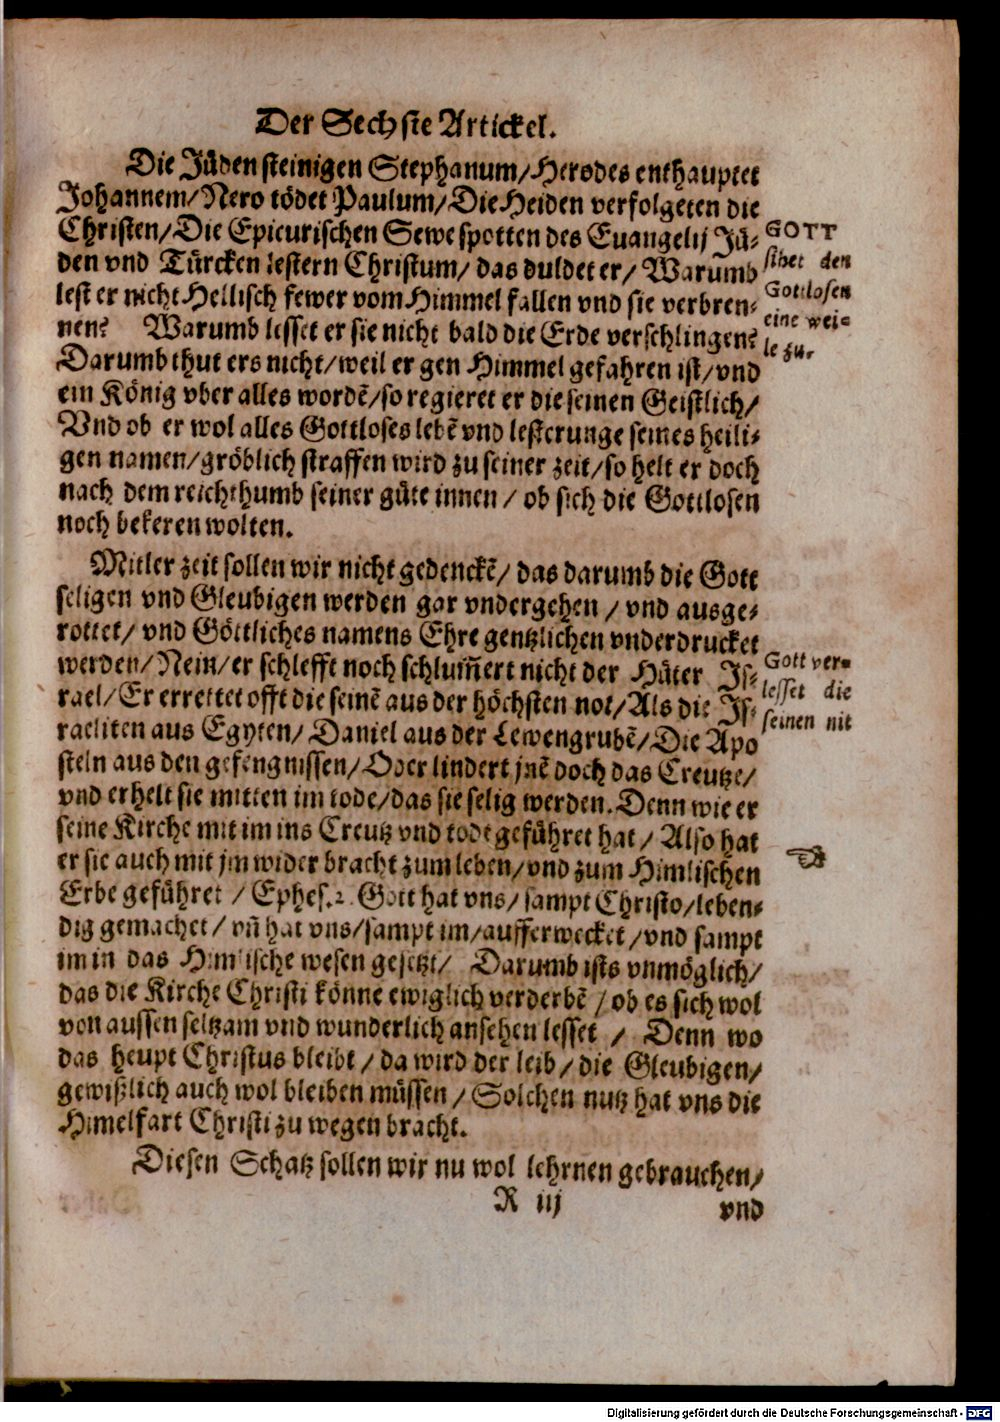 Der Sechste Artickel.
Die Jüden steinigen Stephanum/Herodes enthauptet
Johannem/Nero tödet Paulum/Die Heiden verfolgeten die
Christen/Die Epicurischen Sewe spotten des Euangelij Jü-
den vnd Türcken lestern Christum/das duldet er/Warumb
lest er nicht Hellisch fewer vom Himmel fallen vnd sie verbren-
nen? Warumb lesset er sie nicht bald die Erde verschlingen?
Darumb thut ers nicht/weil er gen Himmel gefahren ist/vnd
ein König vber alles wordē/so regieret er die seinen Geistlich/
Vnd ob er wol alles Gottloses lebē vnd lesterunge seines heili-
gen namen/gröblich straffen wird zu seiner zeit/so helt er doch
nach dem reichthumb seiner güte innen/ob sich die Gottlosen
noch bekeren wolten.
GOTT
sihet den
Gottlosen
eine wei-
le zu.
Mitler zeit sollen wir nicht gedenckē/das darumb die Gott
seligen vnd Gleubigen werden gar vndergehen/vnd ausge-
rottet/vnd Göttliches namens Ehre gentzlichen vnderdrucket
werden/Nein/er schlefft noch schlum̄ert nicht der Hüter Is-
rael/Er errettet offt die seinē aus der höchsten not/Als die Is-
raeliten aus Egypten/Daniel aus der Lewengrubē/Die Apo
steln aus den gefengnissen/Oder lindert jnē doch das Creutze/
vnd erhelt sie mitten im tode/das sie selig werden. Denn wie er
seine Kirche mit im ins Creutz vnd todt geführet hat/Also hat
er sie auch mit jm wider bracht zum leben/vnd zum Himlischen
Erbe geführet/Ephes.2. Gott hat vns/sampt Christo/leben-
dig gemachet/vn̄ hat vns/sampt im/aufferwecket/vnd sampt
im in das Himlische wesen gesetzt/ Darumb ists vnmöglich/
das die Kirche Christi könne ewiglich verderbē/ob es sich wol
von aussen seltzam vnd wunderlich ansehen lesset/ Denn wo
das heupt Christus bleibt/da wird der leib/die Gleubigen/
gewißlich auch wol bleiben müssen/Solchen nutz hat vns die
Himelfart Christi zu wegen bracht.
Gott ver-
lesset die
seinen nit
Diesen Schatz sollen wir nu wol lehrnen gebrauchen/
R iij
vnd
Digitalisierung gefördert durch die Deutsche Forschungsgemeinschaft - DFG